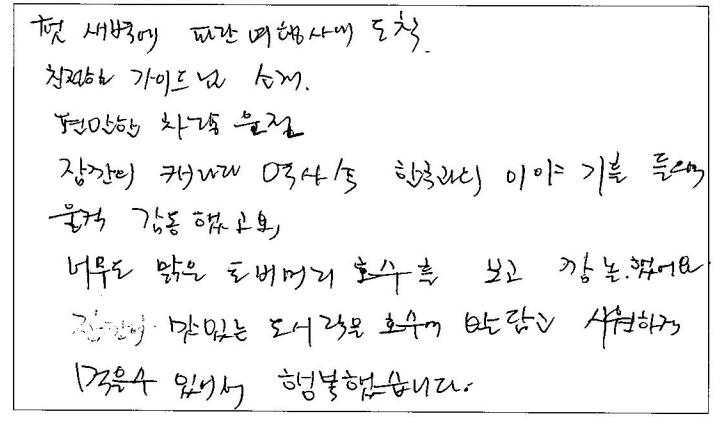 첫 새벽에 파란 여행사에 도착.
친절한 가이드님 소개.
편안한 차량 운전
잠깐의 캐나다 역사속 한국과의 이야기를 들으며
울컥 감동했고요,
너무도 맑은 토버머리 호수를 보고 깜놀.했어요
잠깐의 맛있는 도시락을 호수에 발담고 시원하게
먹을수 있어서 행복했습니다.